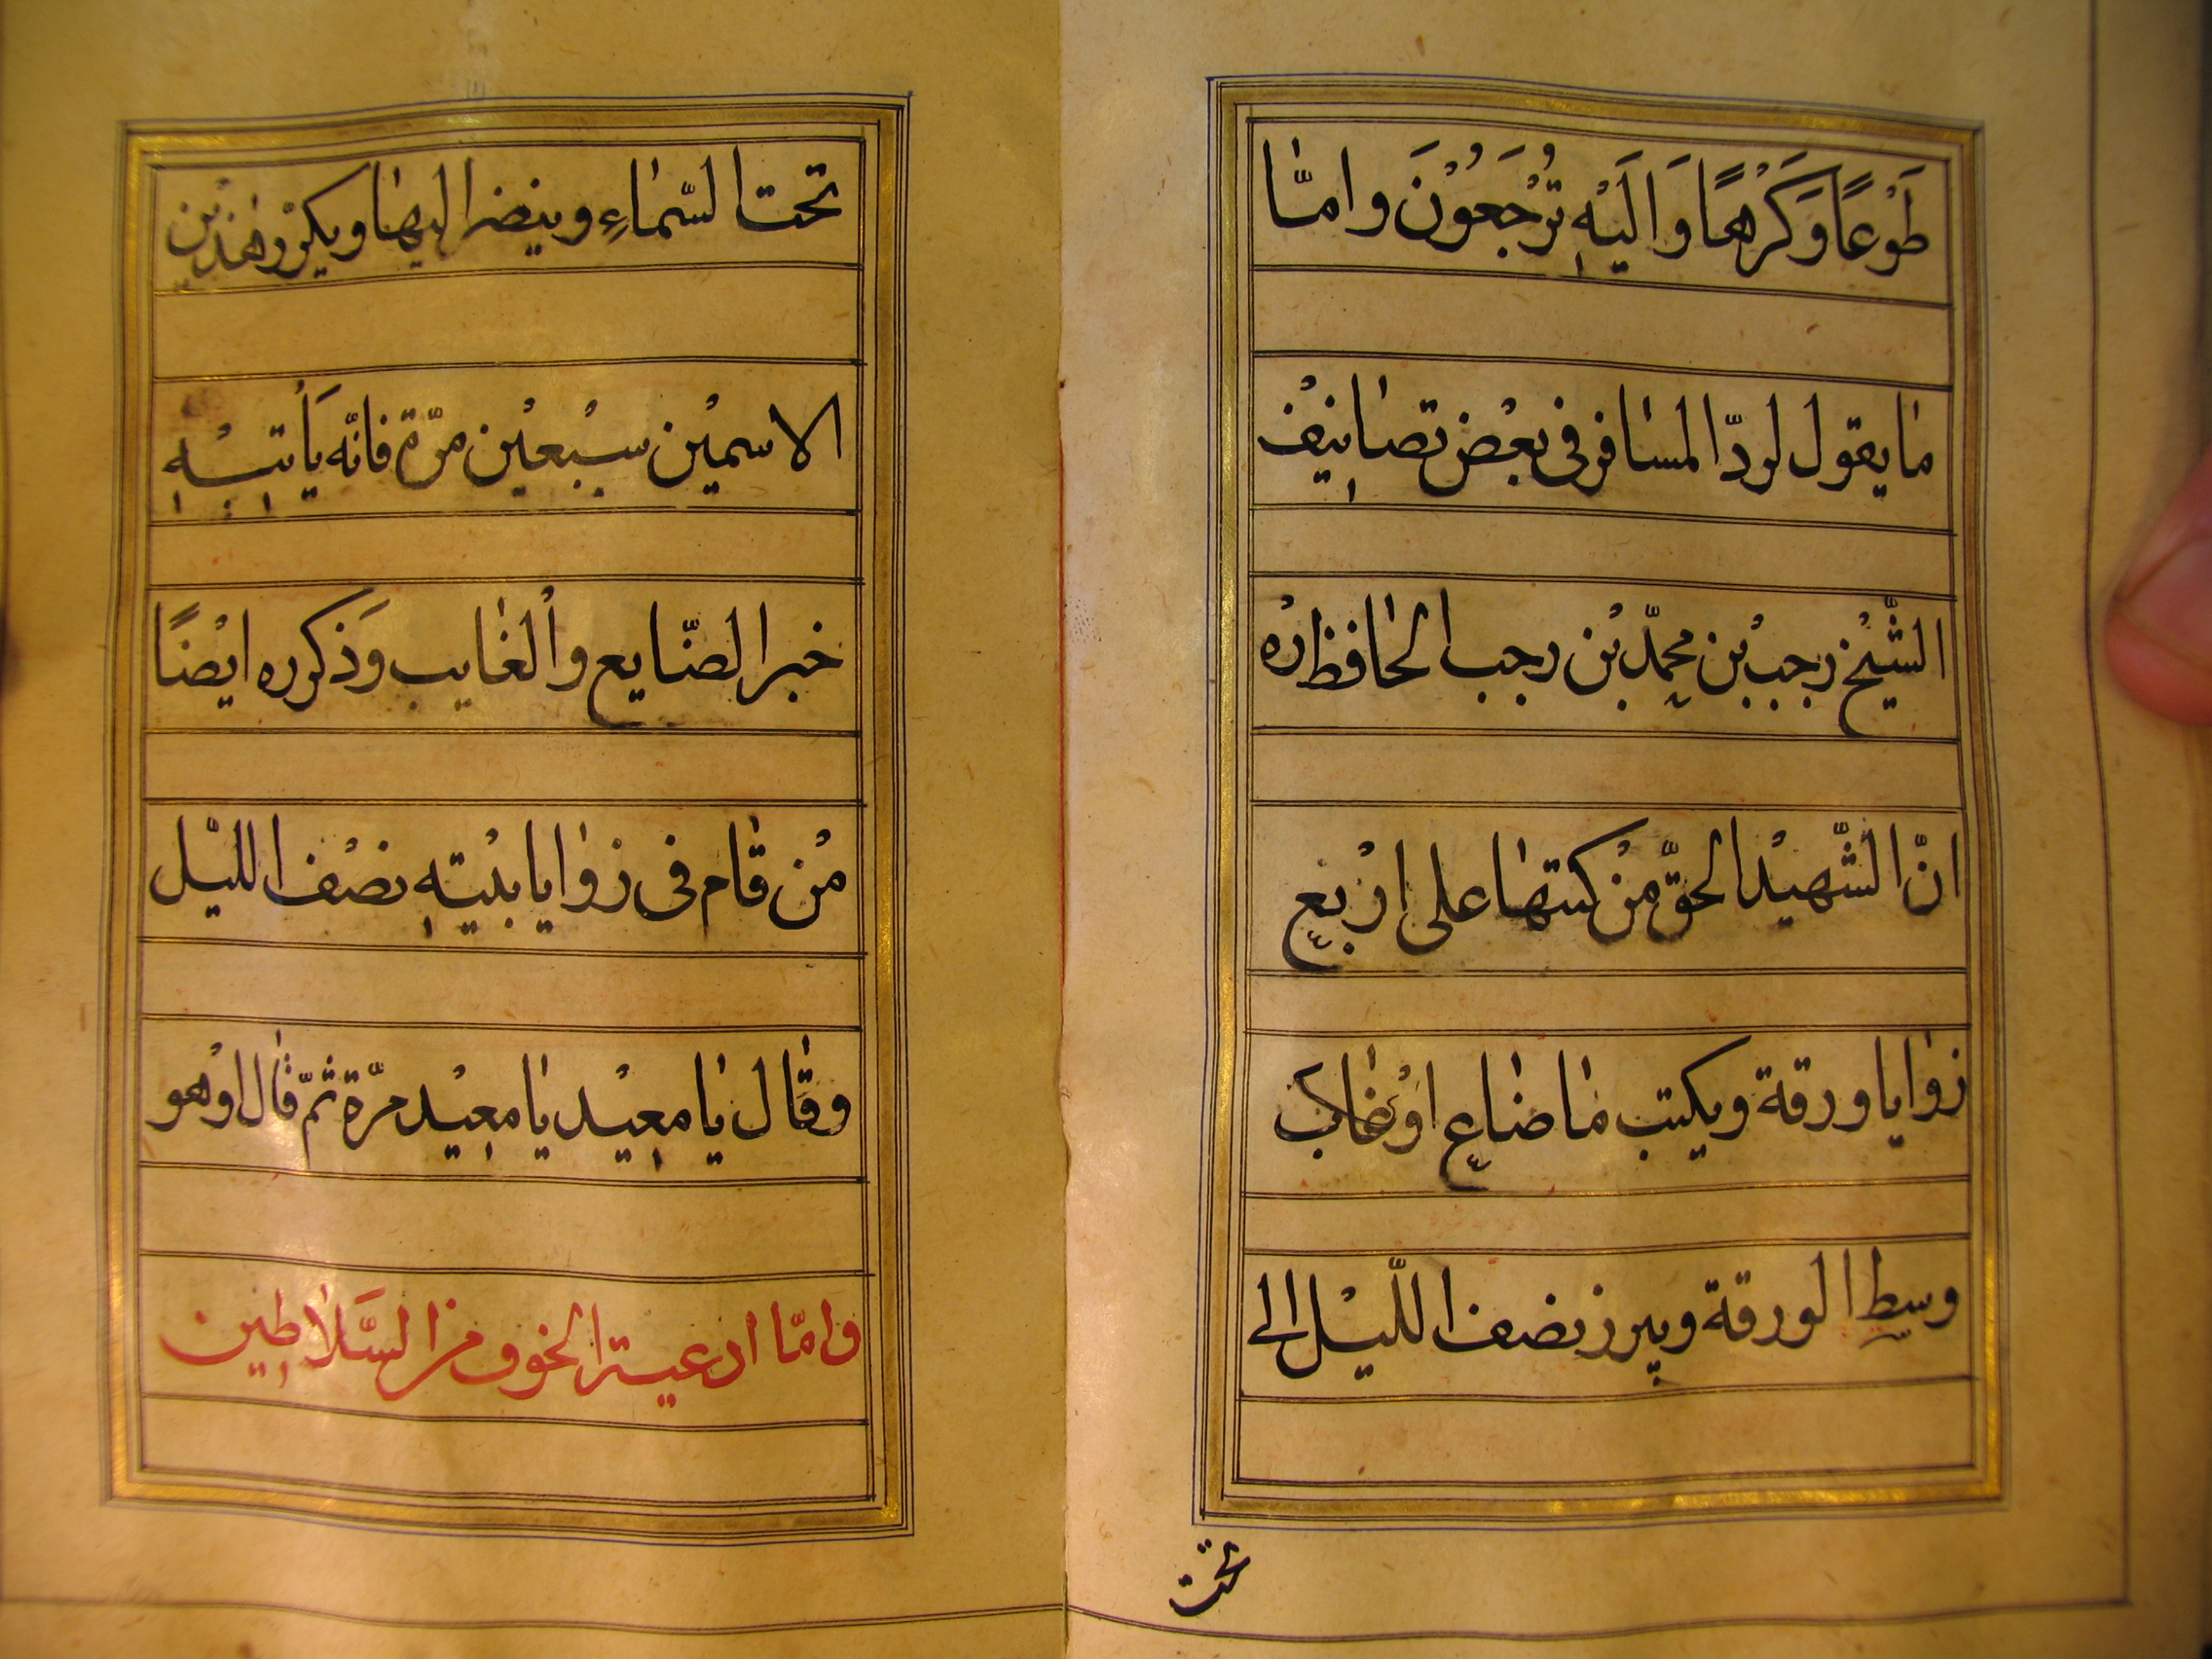 طَوْعًا وَكَرْهًا وَالَيْهِ تُرْجَعُوْنَ وامّا
ما يقول لردّ المسافر فى بعْض تصانيف
الشّيْخ رجب بْن محمّد بْن رجب الحافظ ره
انّ الشّهيْد الحقّ منْ كتبها على ارْبع
زوايا ورقة ويكتب ما ضاع اوْ غاب
وسط الورقة ويبرز نصف اللّيْل الى
تحت
تحت السّماءِ وينضر اليها ويكرّر هذيْن
الاسميْن سبْعيْن مرّة فانّه يَأتيه
خبر الضّايع والغايب وَذكره ايْضًا
منْ قام فى زوايا بيْته نصْف الليْل
وقال يا معيْد يا معيْد مرّة ثمّ قال اوْ هو
وامّا ادعية الخوف من السَّلاطين